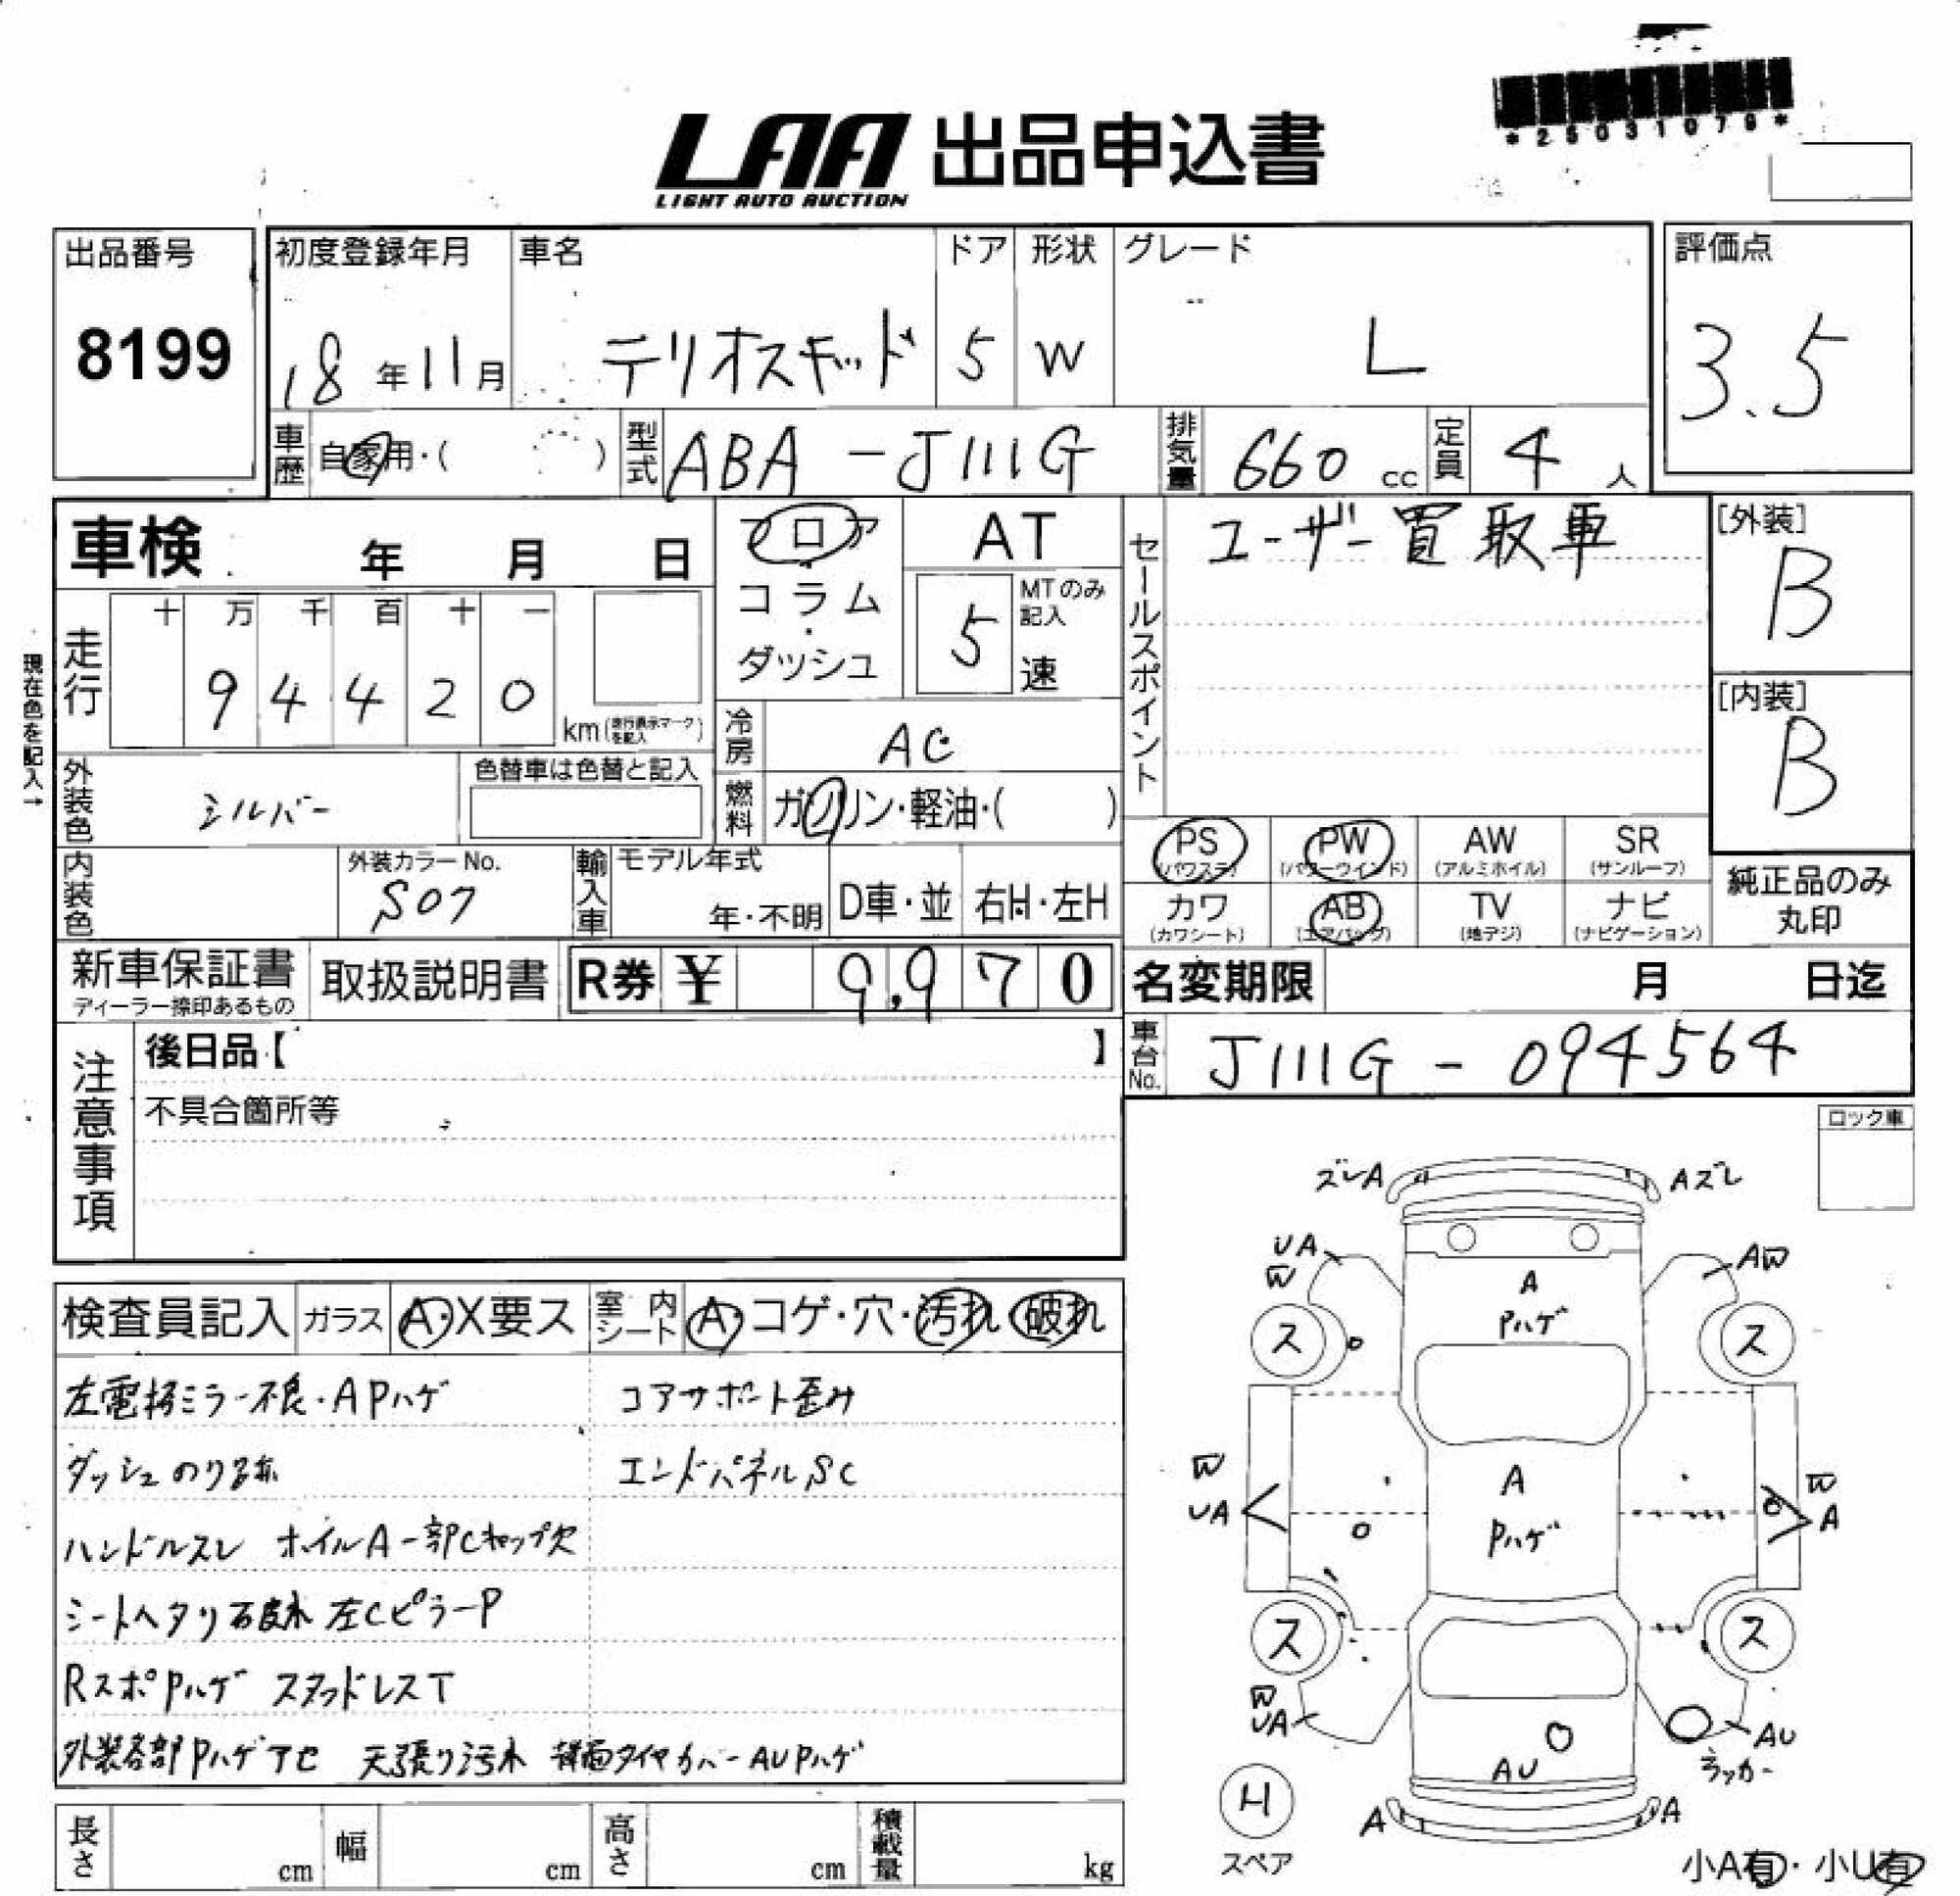 *25031079*
LAA 出品申込書
LIGHT AUTO AUCTION
出品番号
8199
初度登録年月
18年11月
車名
テリオスキッド
ドア
5
形状
W
グレード
L
評価点
3.5
車歴 自家用・( )
型式 ABA-J111G
排気量 660 cc
定員 4 人
車検 年 月 日
フロア
コラム
・
ダッシュ
AT
5 MTのみ記入 速
セールスポイント
ユーザー買取車
[外装]
B
[内装]
B
現在色を記入→
走行
十 万 千 百 十 一
9 4 4 2 0
km(走行表示マークを記入)
冷房 AC
燃料 ガソリン・軽油・( )
外装色 シルバー
色替車は色替と記入
内装色
外装カラーNo.
S07
輸入車
モデル年式
年・不明
D車・並
右H・左H
PS (パワステ)
PW (パワーウインド)
AW (アルミホイル)
SR (サンルーフ)
カワ (カワシート)
AB (エアバッグ)
TV (地デジ)
ナビ (ナビゲーション)
純正品のみ
丸印
新車保証書
ディーラー捺印あるもの
取扱説明書
R券 ¥ 9,970
名変期限 月 日迄
車台No. J111G-094564
注意事項
後日品【 】
不具合箇所等
ロック車
検査員記入
ガラス A・X要ス
室内シート A・コゲ・穴・汚れ 破れ
左電格ミラー不良・A Pハゲ
コアサポート歪み
ダッシュのり跡
エンドパネルSC
ハンドルスレ ホイルA 一部Cキャップ欠
シートヘタリ破れ 左CピラーP
RスポPハゲ スタッドレスT
外装各部Pハゲアセ 天張り汚れ 背面タイヤカバーAU Pハゲ
長さ cm
幅 cm
高さ cm
積載量 kg
ズレA
Aズレ
UA
W
AW
A
Pハゲ
ス
ス
W
UA
A
Pハゲ
W
A
ス
ス
W
UA
AU
AU
ラッカー
H
スペア
A
A
小A有・小U有